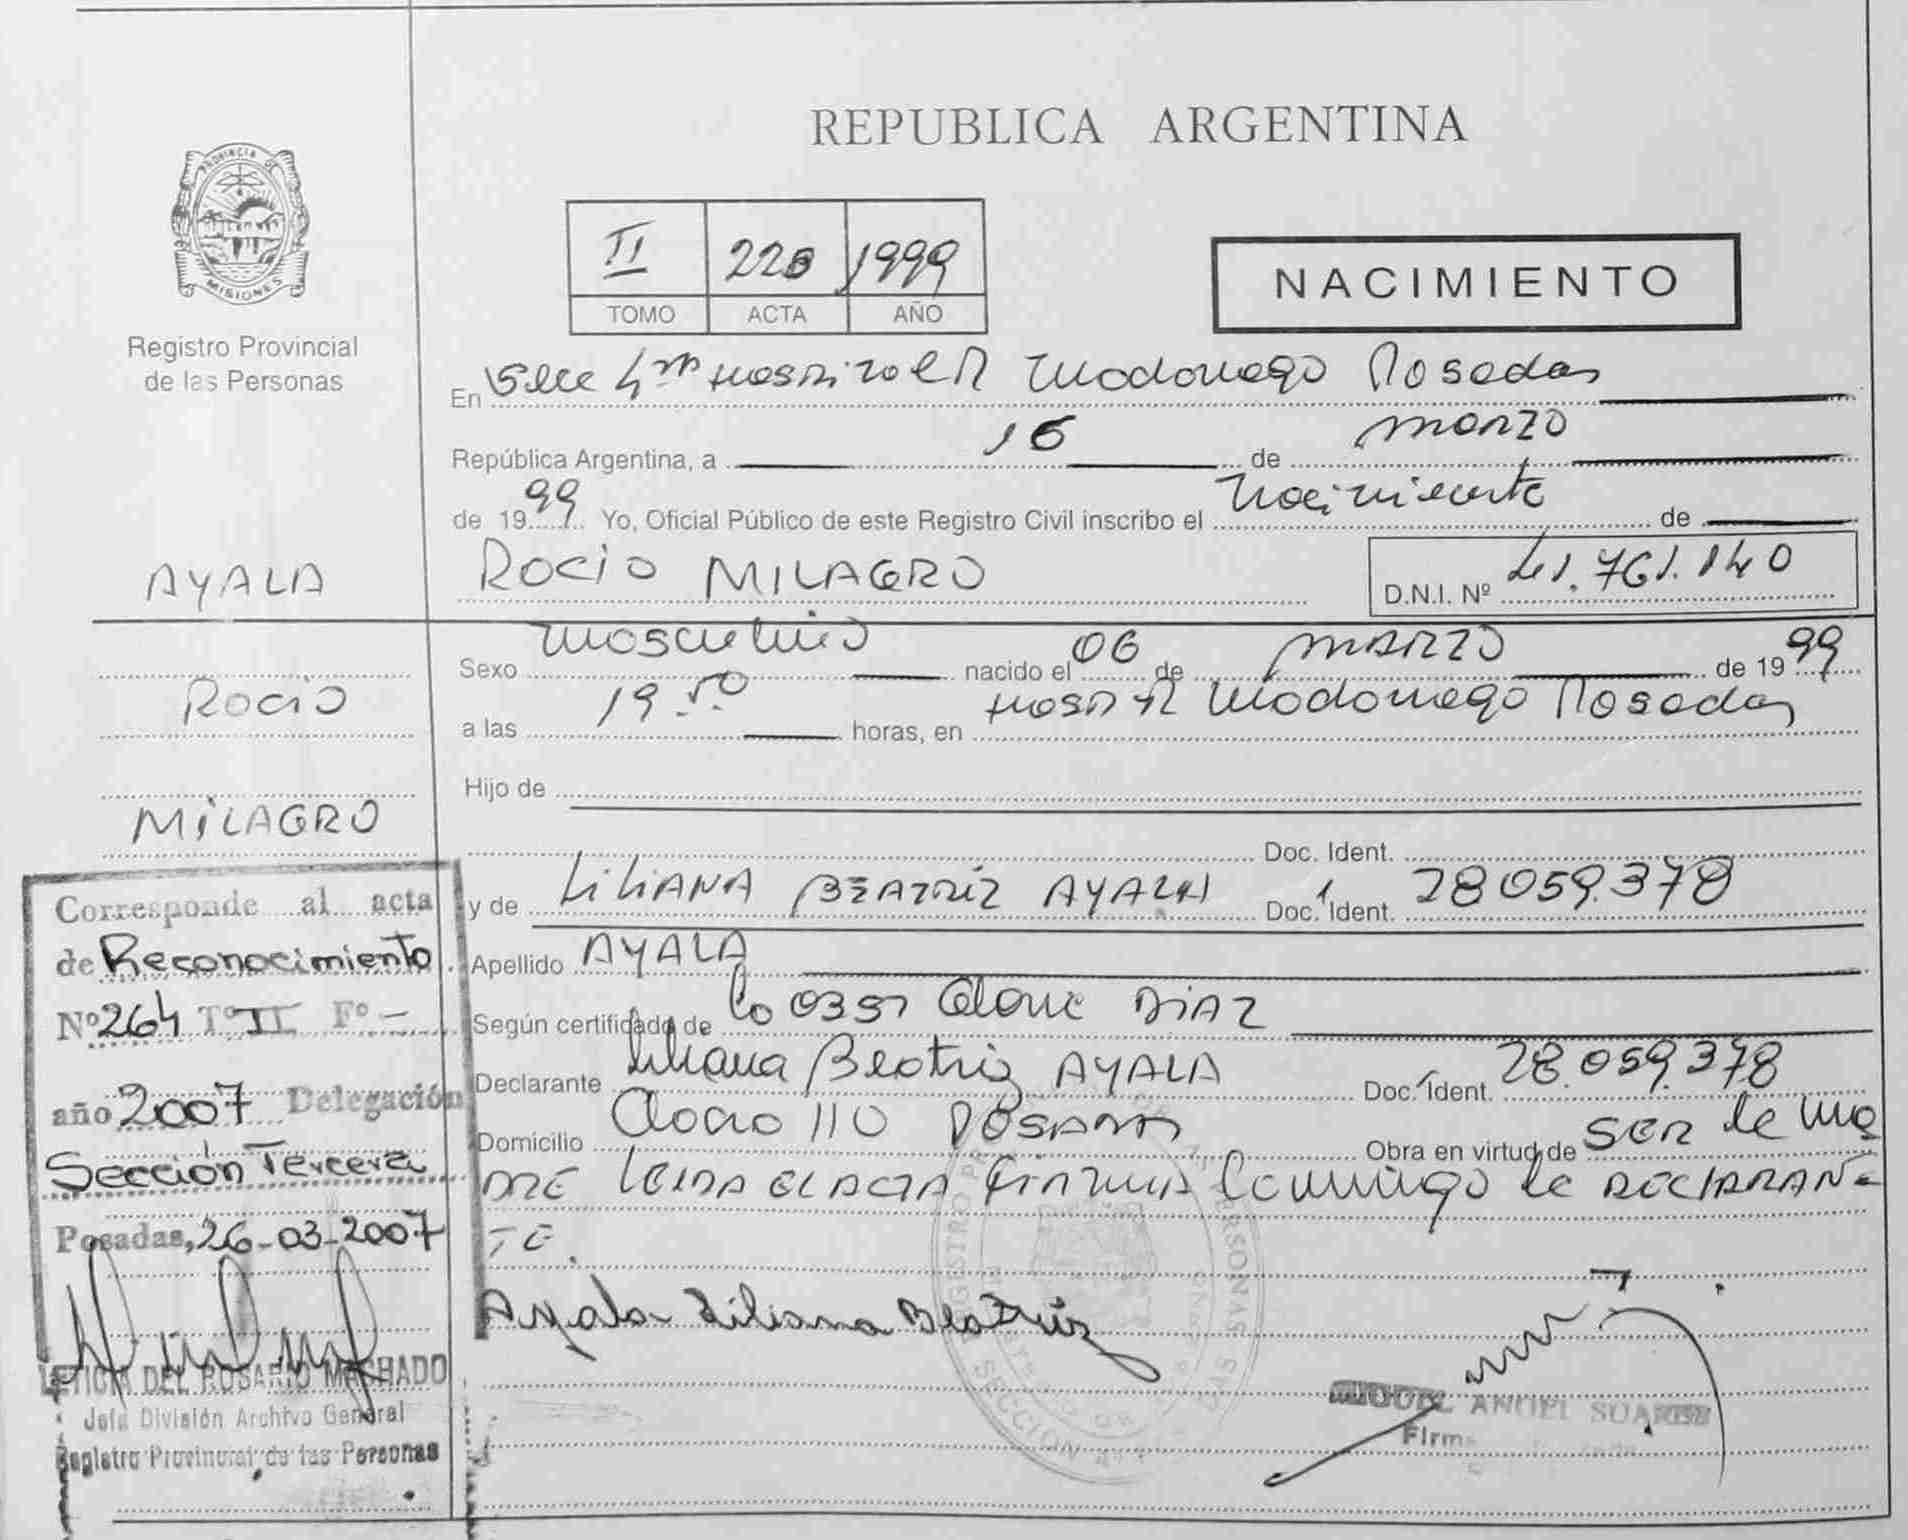 REPUBLICA ARGENTINA
PROVINCIA DE
MISIONES
Registro Provincial
de las Personas
II 228 1999
TOMO ACTA AÑO
NACIMIENTO
En Secc 4ta Hospital R Madariaga Posadas
República Argentina, a 16 de marzo
de 1999 Yo, Oficial Público de este Registro Civil inscribo el Nacimiento de
ROCIO MILAGRO D.N.I. Nº 41.761.140
Sexo Masculino nacido el 06 de MARZO de 1999
a las 19.50 horas, en Hosp R Madariaga Posadas
Hijo de
Doc. Ident.
y de LILIANA BEATRIZ AYALA Doc. Ident. 28059.378
Apellido AYALA
Según certificado de DIAZ
Declarante Liliana Beatriz AYALA Doc. Ident. 28.059.378
Domicilio 110 POSADAS Obra en virtud de SER la Ma
DRE LEIDA EL ACTA FIRMA Conmigo la DECLARAN
TE.
Ayala Liliana Beatriz
MIGUEL ANGEL SUAREZ
Firma
AYALA
ROCIO
MILAGRO
Corresponde al acta
de Reconocimiento
Nº 264 Tº II Fº -
año 2007 Delegación
Sección Tercera
Posadas, 26-03-2007
LETICIA DEL ROSARIO MACHADO
Jefa División Archivo General
Registro Provincial de las Personas